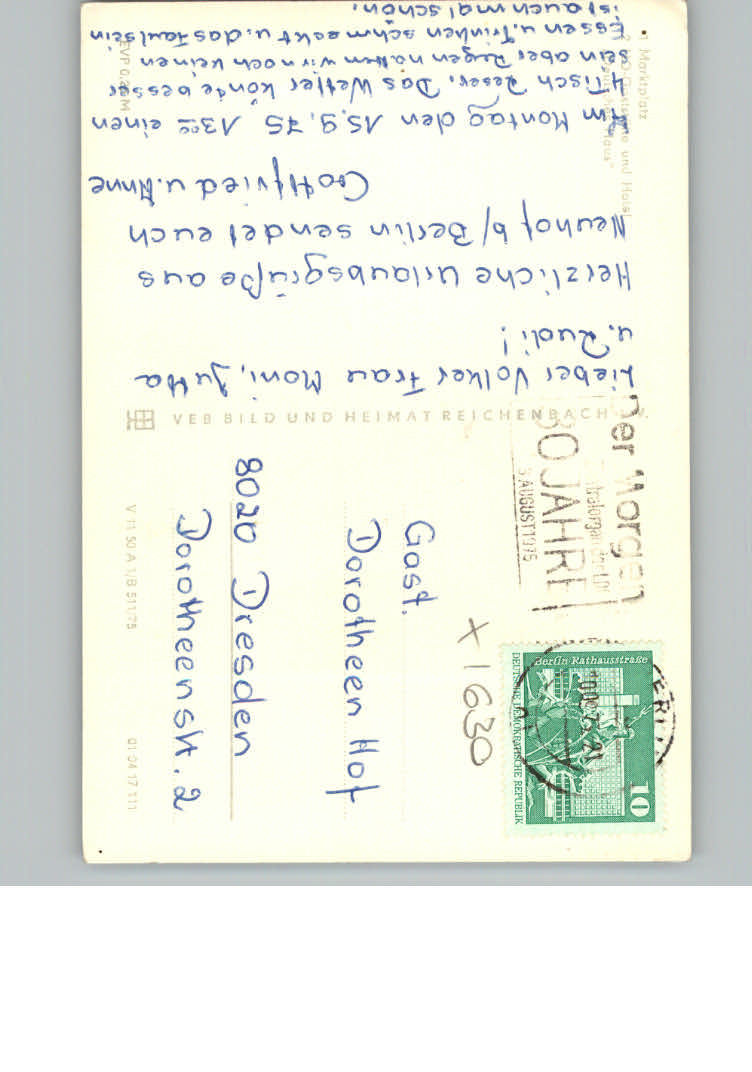 Lieber Volker Frau Moni, Jutta
u. Rudi!
Herzliche Urlaubsgrüße aus
Neuhof b/ Berlin sendet euch
Gottfried u. Anne
Am Montag den 15.9.75 13⁰⁰ einen
4 Tisch Reser. Das Wetter könte besser
sein aber Regen hatten wir noch keinen
Essen u. Trinken schmeckt u. das Faulsein
ist auch mal schön.
1 Marktplatz
und Hotel
EVP 0,20 M
VEB BILD UND HEIMAT REICHENBACH
V 11 50 A 1/B 511/75
01 04 17 111
Der Morgen
30 JAHRE
3 AUGUST 1975
Berlin Rathausstraße
DEUTSCHE DEMOKRATISCHE REPUBLIK
10
X 1630
Gast.
Dorotheen Hof
8020 Dresden
Dorotheenstr. 2